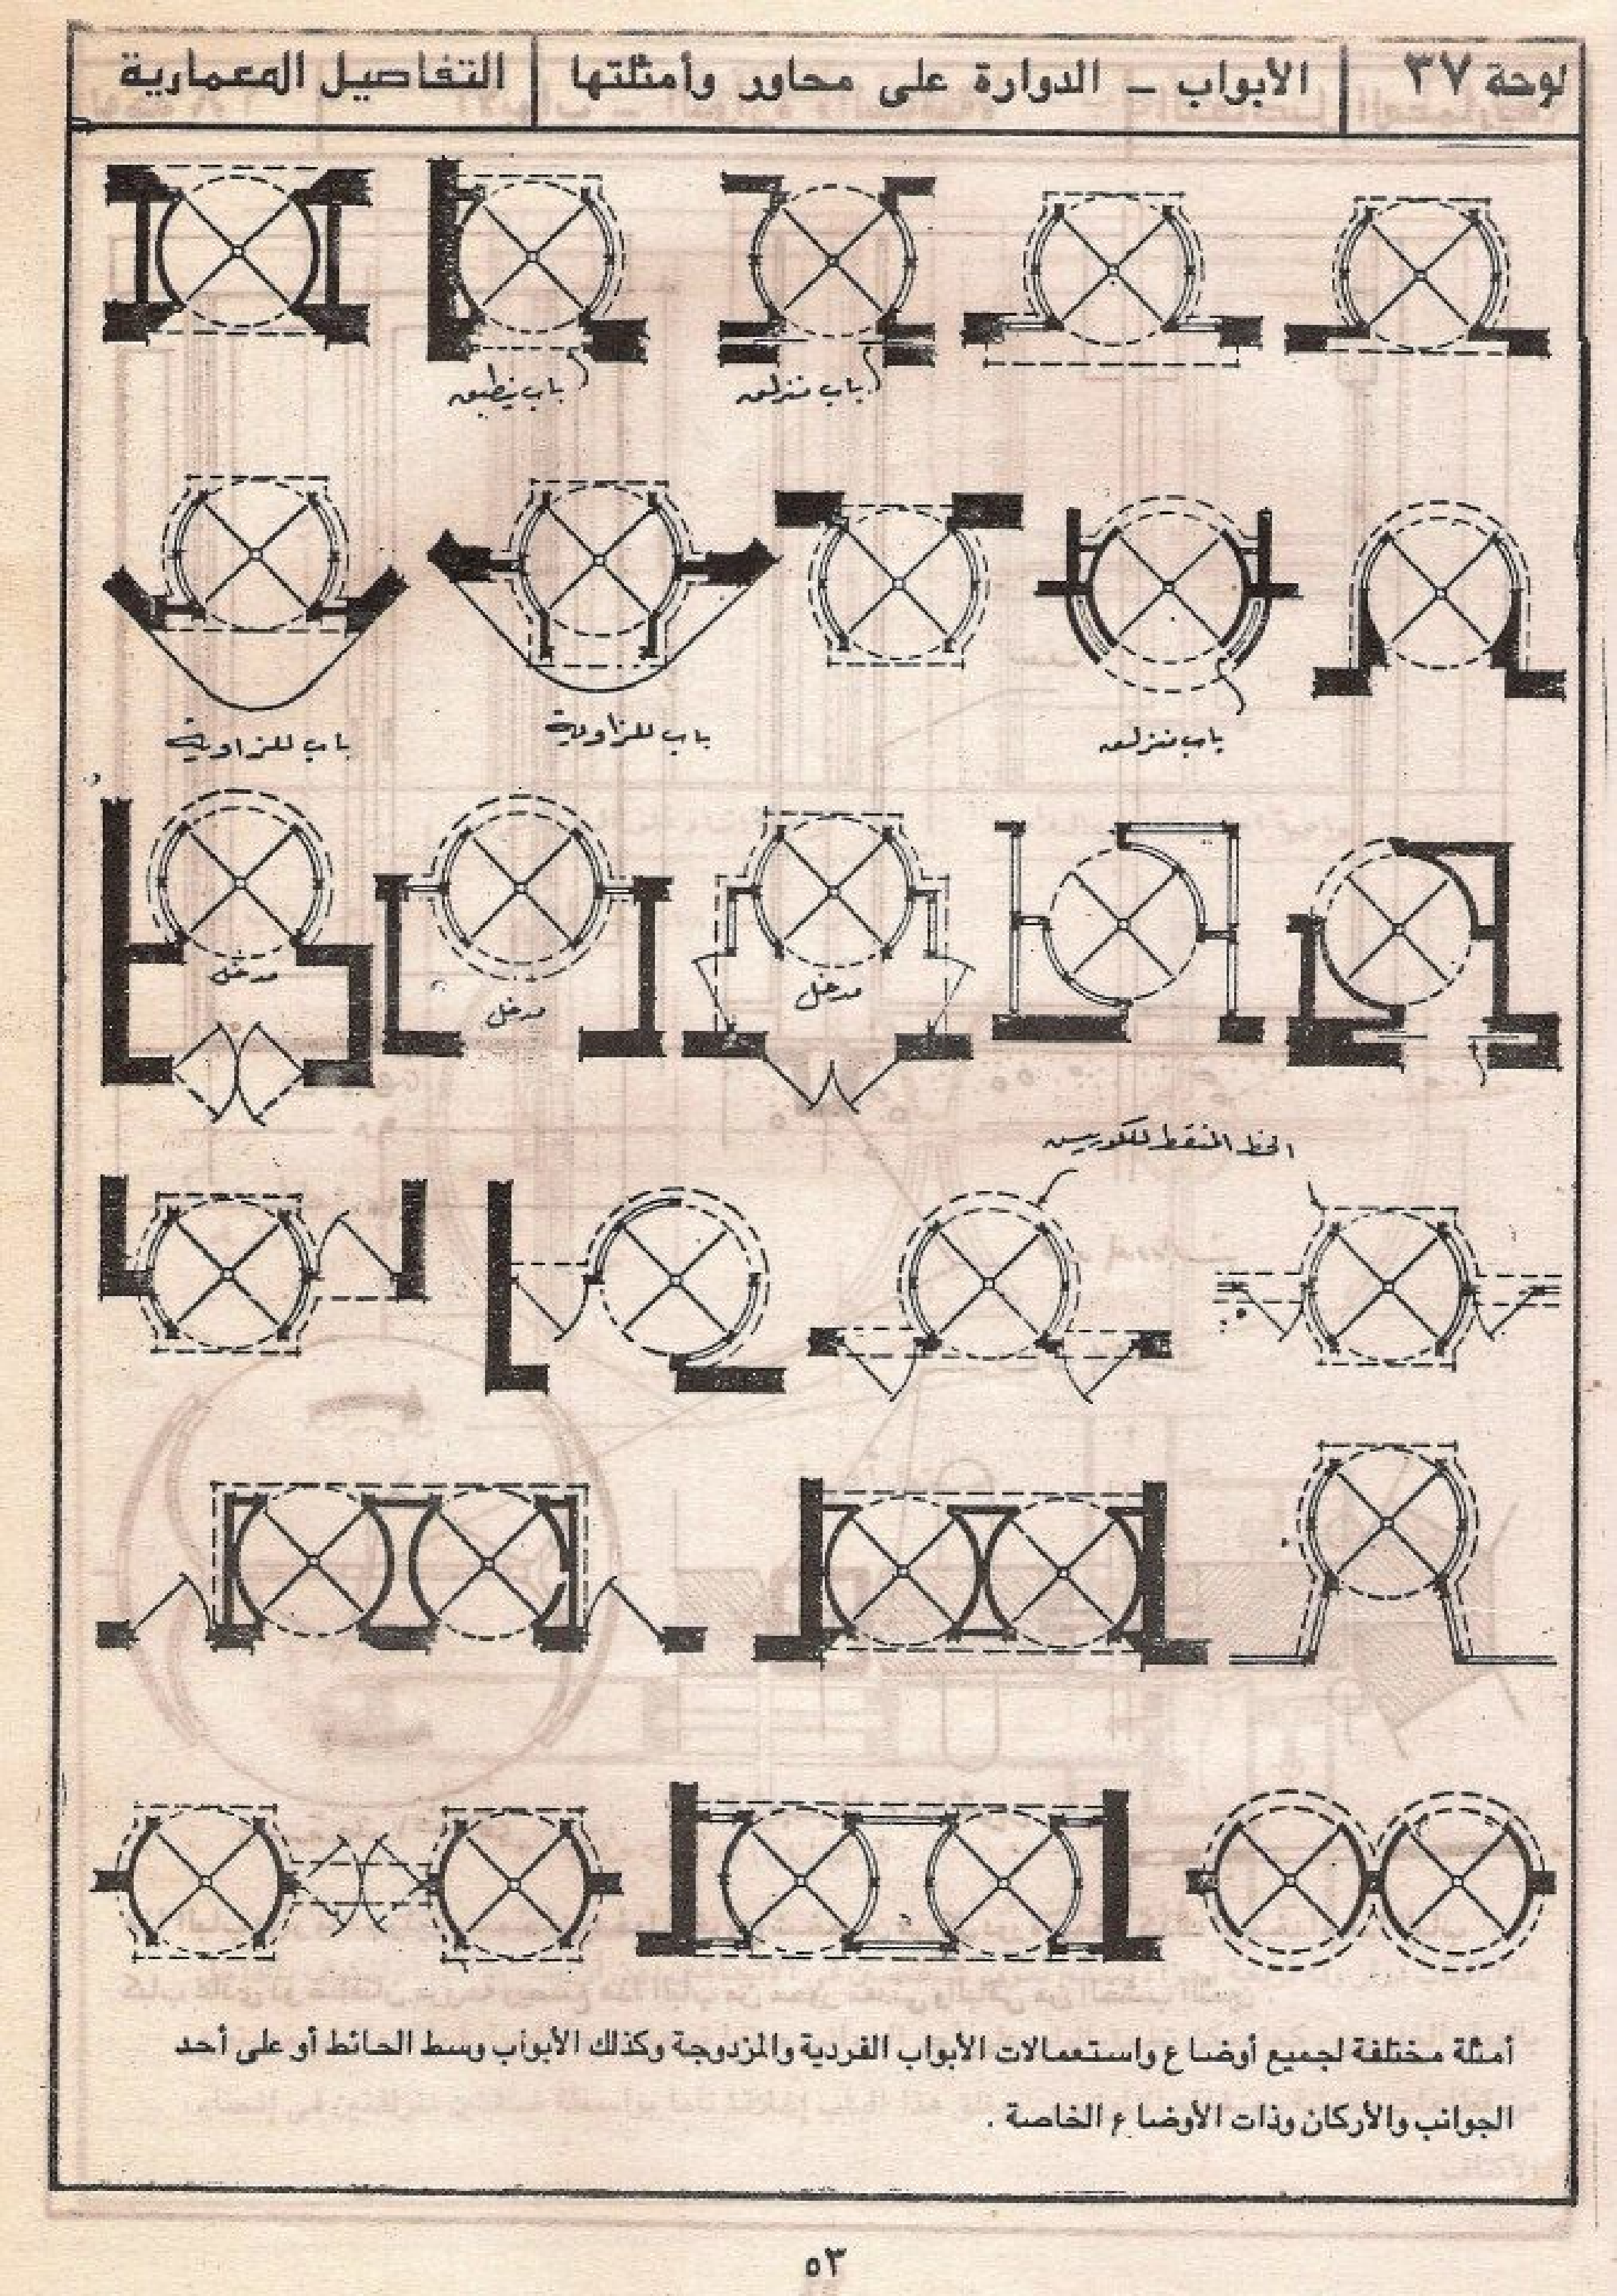 لوحة ٣٧
الأبواب - الدوارة على محاور وأمثلتها
التفاصيل المعمارية
باب منزلق
باب ينطبق
باب منزلق
باب للزاوية
باب للزاوية
مدخل
مدخل
مدخل
الخط المنقط للكورنيش
أمثلة مختلفة لجميع أوضاع واستعمالات الأبواب الفردية والمزدوجة وكذلك الأبواب وسط الحائط أو على أحد
الجوانب والأركان وذات الأوضاع الخاصة .
٥٣